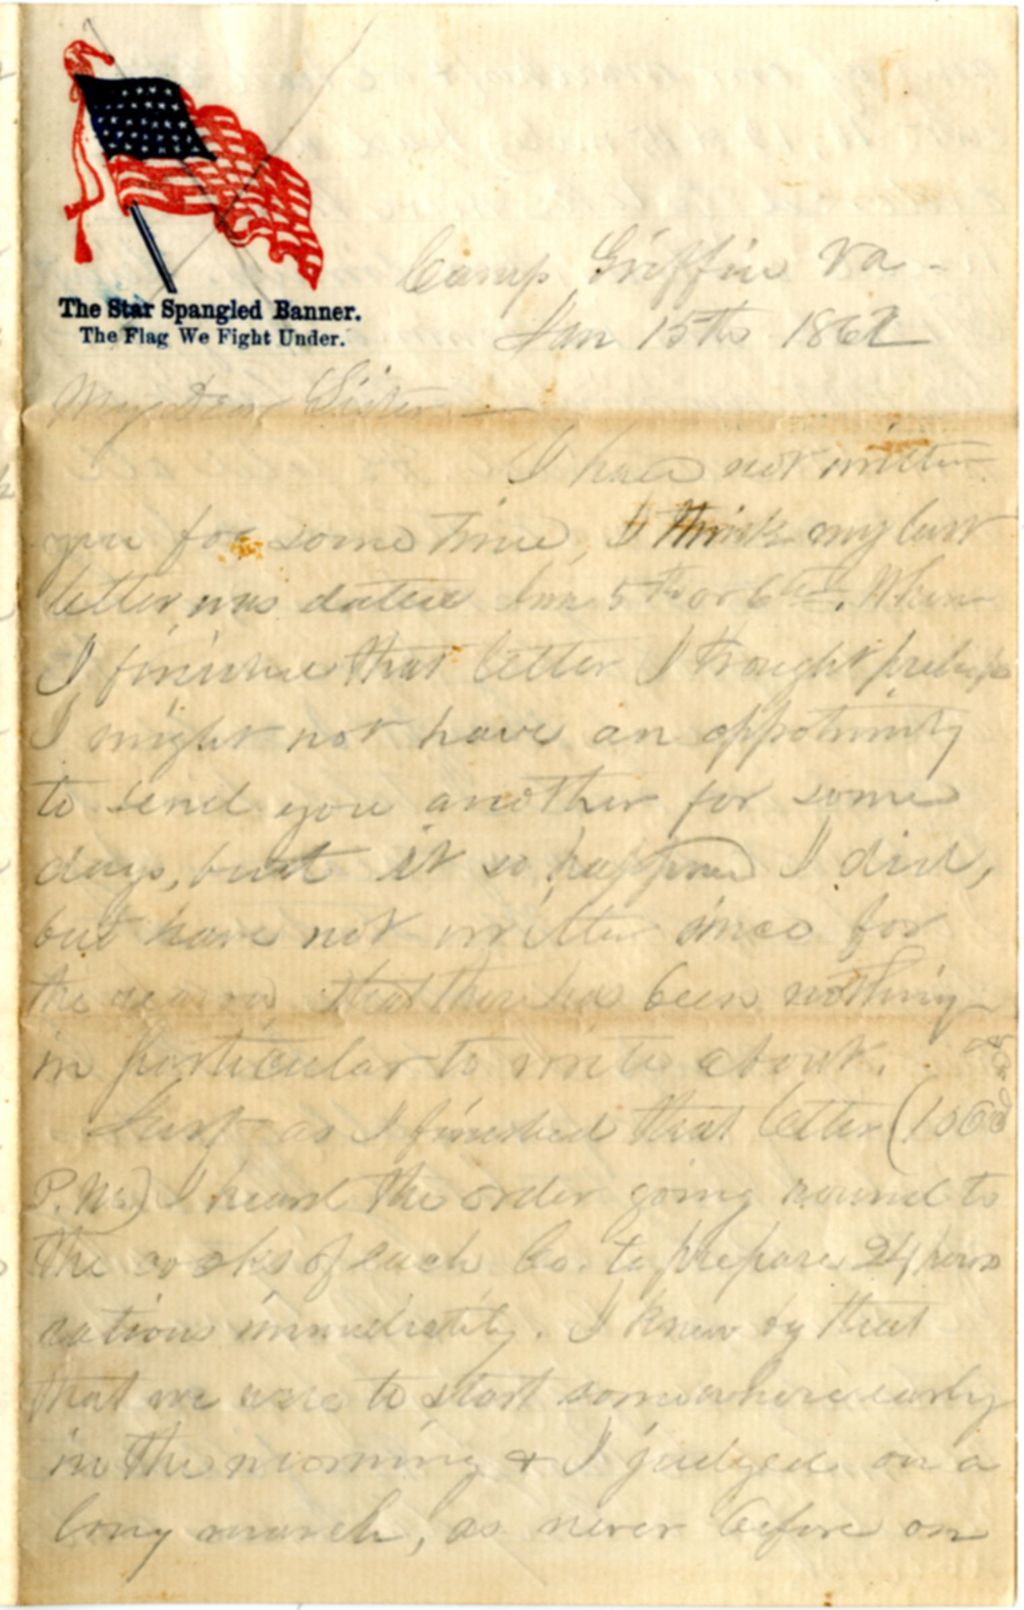 The Star Spangled Banner.
The Flag We Fight Under.
Camp Griffin Va -
Jan 15th 1862
My Dear Sister —
I have not written
you for some time, I think my last
letter was dated Jan 5th or 6th. When
I finished that letter I thought
I might not have an oppotunity
to send you another for some
days, but it so happened I did,
but have not written since for
the reason that there has been nothing
in particular to write about.
Just as I finished that letter (
P.M.) I heard the order going round to
the cooks of each Co. to prepare 24 hours
rations immediately. I knew by that
that we were to start somewhere early
in the morning & I judged on a
long march, as never before on